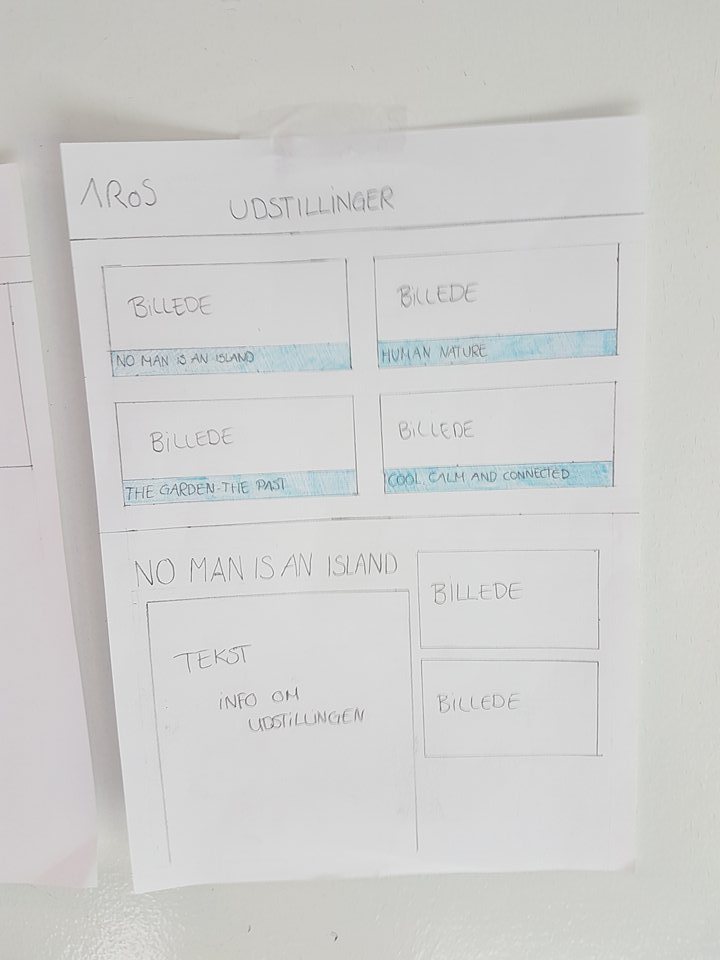 ARoS
UDSTILLINGER
BILLEDE
NO MAN IS AN ISLAND
BILLEDE
HUMAN NATURE
BILLEDE
THE GARDEN-THE PAST
BILLEDE
COOL, CALM AND CONNECTED
NO MAN IS AN ISLAND
TEKST
INFO OM
UDSTILLINGEN
BILLEDE
BILLEDE